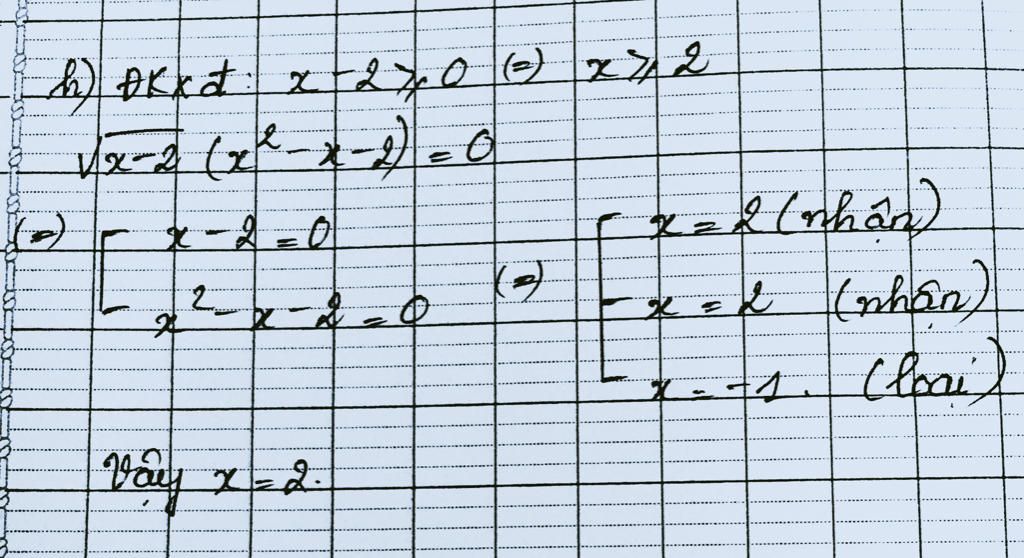 h) ĐKXĐ: x - 2 ⩾ 0 (=) x ⩾ 2
√x-2 (x² - x - 2) = 0
(=) [ x - 2 = 0
x² - x - 2 = 0
(=) [ x = 2 (nhận)
x = 2 (nhận)
x = -1. (loại)
Vậy x = 2.